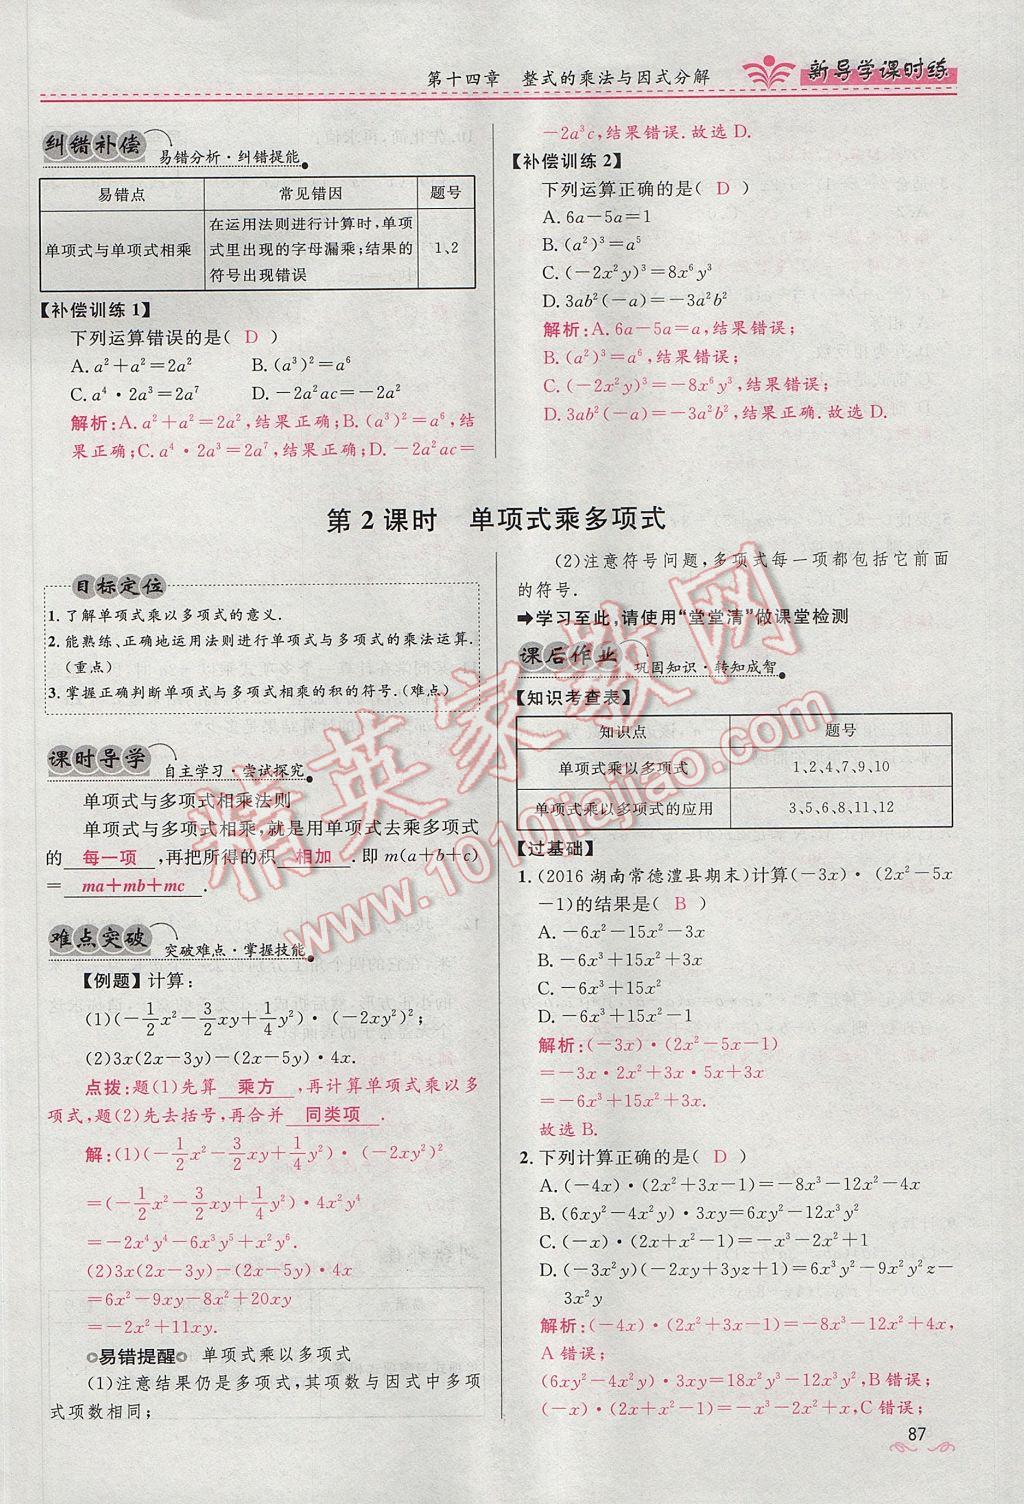 第十四章 整式的乘法与因式分解
新导学课时练
纠错补偿 易错分析·纠错提能
易错点 常见错因 题号
单项式与单项式相乘 在运用法则进行计算时,单项式里出现的字母漏乘;结果的符号出现错误 1、2
【补偿训练1】
下列运算错误的是( D )
A. a²+a²=2a² B. (a³)²=a⁶
C. a⁴·2a³=2a⁷ D. -2a²ac=-2a²
解析:A. a²+a²=2a²,结果正确;B. (a³)²=a⁶,结
果正确;C. a⁴·2a³=2a⁷,结果正确;D. -2a²ac=
-2a³c,结果错误.故选 D.
【补偿训练2】
下列运算正确的是( D )
A. 6a-5a=1
B. (a²)³=a⁵
C. (-2x²y)³=8x⁶y³
D. 3ab²(-a)=-3a²b²
解析:A. 6a-5a=a,结果错误;
B. (a²)³=a⁶,结果错误;
C. (-2x²y)³=-8x⁶y³,结果错误;
D. 3ab²(-a)=-3a²b²,结果正确.故选 D.
第2课时 单项式乘多项式
目标定位
1. 了解单项式乘以多项式的意义.
2. 能熟练、正确地运用法则进行单项式与多项式的乘法运算.
(重点)
3. 掌握正确判断单项式与多项式相乘的积的符号.(难点)
课时导学 自主学习·尝试探究
单项式与多项式相乘法则
单项式与多项式相乘,就是用单项式去乘多项式
的 每一项 ,再把所得的积 相加 .即 m(a+b+c)
= ma+mb+mc .
难点突破 突破难点·掌握技能
【例题】计算:
(1)(-1/2x²-3/2xy+1/4y²)·(-2xy²)²;
(2)3x(2x-3y)-(2x-5y)·4x.
点拨:题(1)先算 乘方 ,再计算单项式乘以多
项式,题(2)先去括号,再合并 同类项 .
解:(1)(-1/2x²-3/2xy+1/4y²)·(-2xy²)²
=(-1/2x²-3/2xy+1/4y²)·4x²y⁴
=-2x⁴y⁴-6x³y⁵+x²y⁶.
(2)3x(2x-3y)-(2x-5y)·4x
=6x²-9xy-8x²+20xy
=-2x²+11xy.
易错提醒 单项式乘以多项式
(1)注意结果仍是多项式,其项数与因式中多项
式项数相同;
(2)注意符号问题,多项式每一项都包括它前面
的符号.
➡学习至此,请使用“堂堂清”做课堂检测
课后作业 巩固知识·转知成智
【知识考查表】
知识点 题号
单项式乘以多项式 1、2、4、7、9、10
单项式乘以多项式的应用 3、5、6、8、11、12
【过基础】
1. (2016 湖南常德澧县期末)计算(-3x)·(2x²-5x
-1)的结果是( B )
A. -6x²-15x²-3x
B. -6x³+15x²+3x
C. -6x³+15x²
D. -6x³+15x²-1
解析:(-3x)·(2x²-5x-1)
=-3x·2x²+3x·5x+3x
=-6x³+15x²+3x.
故选 B.
2. 下列计算正确的是( D )
A. (-4x)·(2x²+3x-1)=-8x³-12x²-4x
B. (6xy²-4x²y)·3xy=6xy²-12x³y²
C. (-x)·(2x+x²-1)=-x³-2x²+1
D. (-3x²y)(-2xy+3yz+1)=6x³y²-9x²y²z-
3x²y
解析:(-4x)·(2x²+3x-1)=-8x³-12x²+4x,
A 错误;
(6xy²-4x²y)·3xy=18x²y³-12x³y²,B 错误;
(-x)·(2x+x²-1)=-x³-2x²+x,C 错误;
87
精英家教网
www.1010jiajiao.com